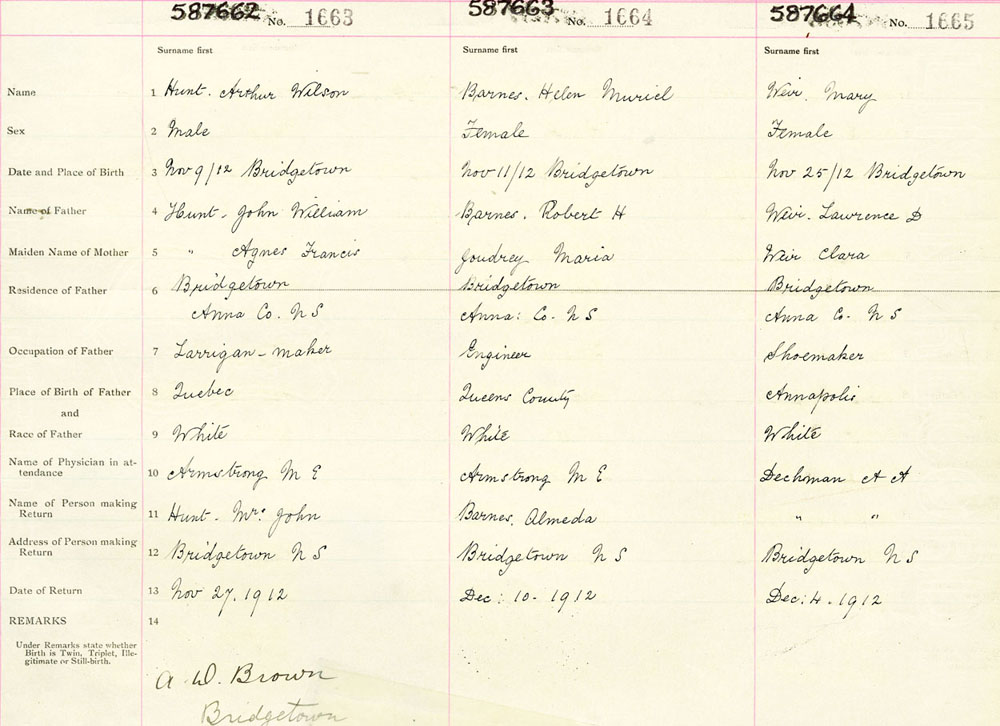 587662 No. 1663 587663 No. 1664 587664 No. 1665
Surname first Surname first Surname first
Name 1 Hunt. Arthur Wilson Barnes. Helen Muriel Weir. Mary
Sex 2 Male Female Female
Date and Place of Birth 3 Nov 9/12 Bridgetown Nov 11/12 Bridgetown Nov 25/12 Bridgetown
Name of Father 4 Hunt - John William Barnes. Robert H Weir. Lawrence D
Maiden Name of Mother 5 " Agnes Francis Joudrey Maria Weir Clara
Residence of Father 6 Bridgetown Bridgetown Bridgetown
Anna Co. N S Anna: Co. N S Anna Co. N S
Occupation of Father 7 Larrigan-maker Engineer Shoemaker
Place of Birth of Father 8 Quebec Queens County Annapolis
and
Race of Father 9 White White White
Name of Physician in at-
tendance 10 Armstrong M E Armstrong M E Dechman A A
Name of Person making
Return 11 Hunt - Mr: John Barnes, Almeda " "
Address of Person making
Return 12 Bridgetown N S Bridgetown N S Bridgetown N S
Date of Return 13 Nov 27, 1912 Dec: 10 - 1912 Dec: 4 - 1912
REMARKS 14
Under Remarks state whether
Birth is Twin, Triplet, Ille-
gitimate or Still-birth.
A. W. Brown
Bridgetown